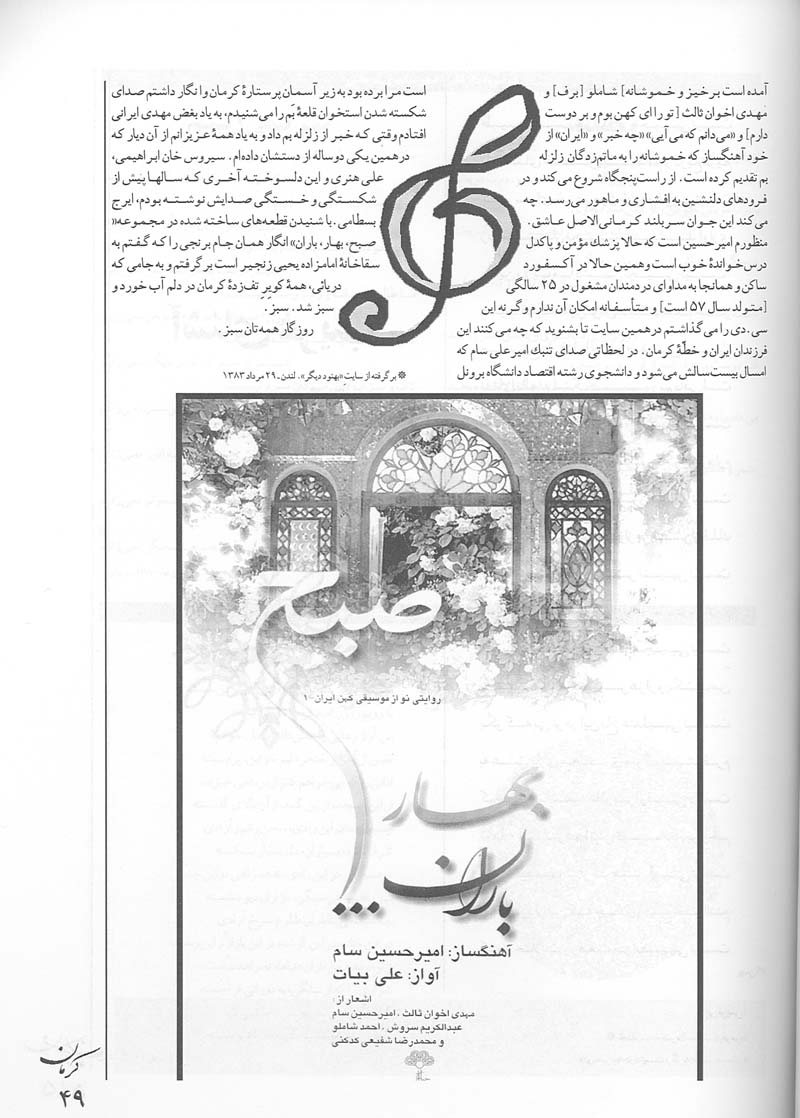 آمده است برخیز و خموشانه] شاملو [برف] و
مهدی اخوان ثالث [تو را ای کهن بوم و بر دوست
دارم] و «می‌دانم که می‌آیی» «چه خبر» و «ایران» از
خود آهنگساز که خموشانه را به ماتم‌زدگان زلزله
بم تقدیم کرده است. از راست‌پنجگاه شروع می‌کند و در
فرودهای دلنشین به افشاری و ماهور می‌رسد. چه
می‌کند این جوان سربلند کرمانی‌الاصل عاشق.
منظورم امیرحسین است که حالا پزشك مؤمن و پاکدل
درس‌خواندهٔ خوب است وهمین حالا در آکسفورد
ساکن و همانجا به مداوای دردمندان مشغول در ۲۵ سالگی
[متولد سال ۵۷ است] و متأسفانه امکان آن ندارم وگرنه این
سی.دی را می‌گذاشتم درهمین سایت تا بشنوید که چه می‌کنند این
فرزندان ایران و خطّهٔ کرمان. در لحظاتی صدای تنبك امیرعلی سام که
امسال بیست‌سالش می‌شود و دانشجوی رشته اقتصاد دانشگاه برونل
است مرا برده بود به زیر آسمان پرستارهٔ کرمان وانگار داشتم صدای
شکسته شدن استخوان قلعهٔ بَم را می‌شنیدم، به یاد بغض مهدی ایرانی
افتادم وقتی که خبر از زلزله بم داد و به یاد همهٔ عزیزانم از آن دیار که
درهمین یکی دوساله از دستشان داده‌ام. سیروس خان ابراهیمی،
علی هنری و این دلسوخته آخری که سالها پیش از
شکستگی و خستگی صدایش نوشته بودم، ایرج
بسطامی. با شنیدن قطعه‌های ساخته شده در مجموعه«
صبح، بهار، باران» انگار همان جام برنجی را که گفتم به
سقاخانهٔ امامزاده یحیی زنجیر است برگرفتم و به جامی که
دریائی، همهٔ کویرِ تف‌زدهٔ کرمان در دلم آب خورد و
سبز شد. سبز.
روزگار همه‌تان سبز.
❊ برگرفته از سایتِ «بهنود دیگر». لندن ـ ۲۹ مرداد ۱۳۸۳
صبح
روایتی نو از موسیقی کهن ایران - ۱
بهار
باران...
آهنگساز: امیرحسین سام
آواز: علی بیات
اشعار از:
مهدی اخوان ثالث . امیرحسین سام
عبدالکریم سروش . احمد شاملو
و محمدرضا شفیعی کدکنی
کرمان
۴۹